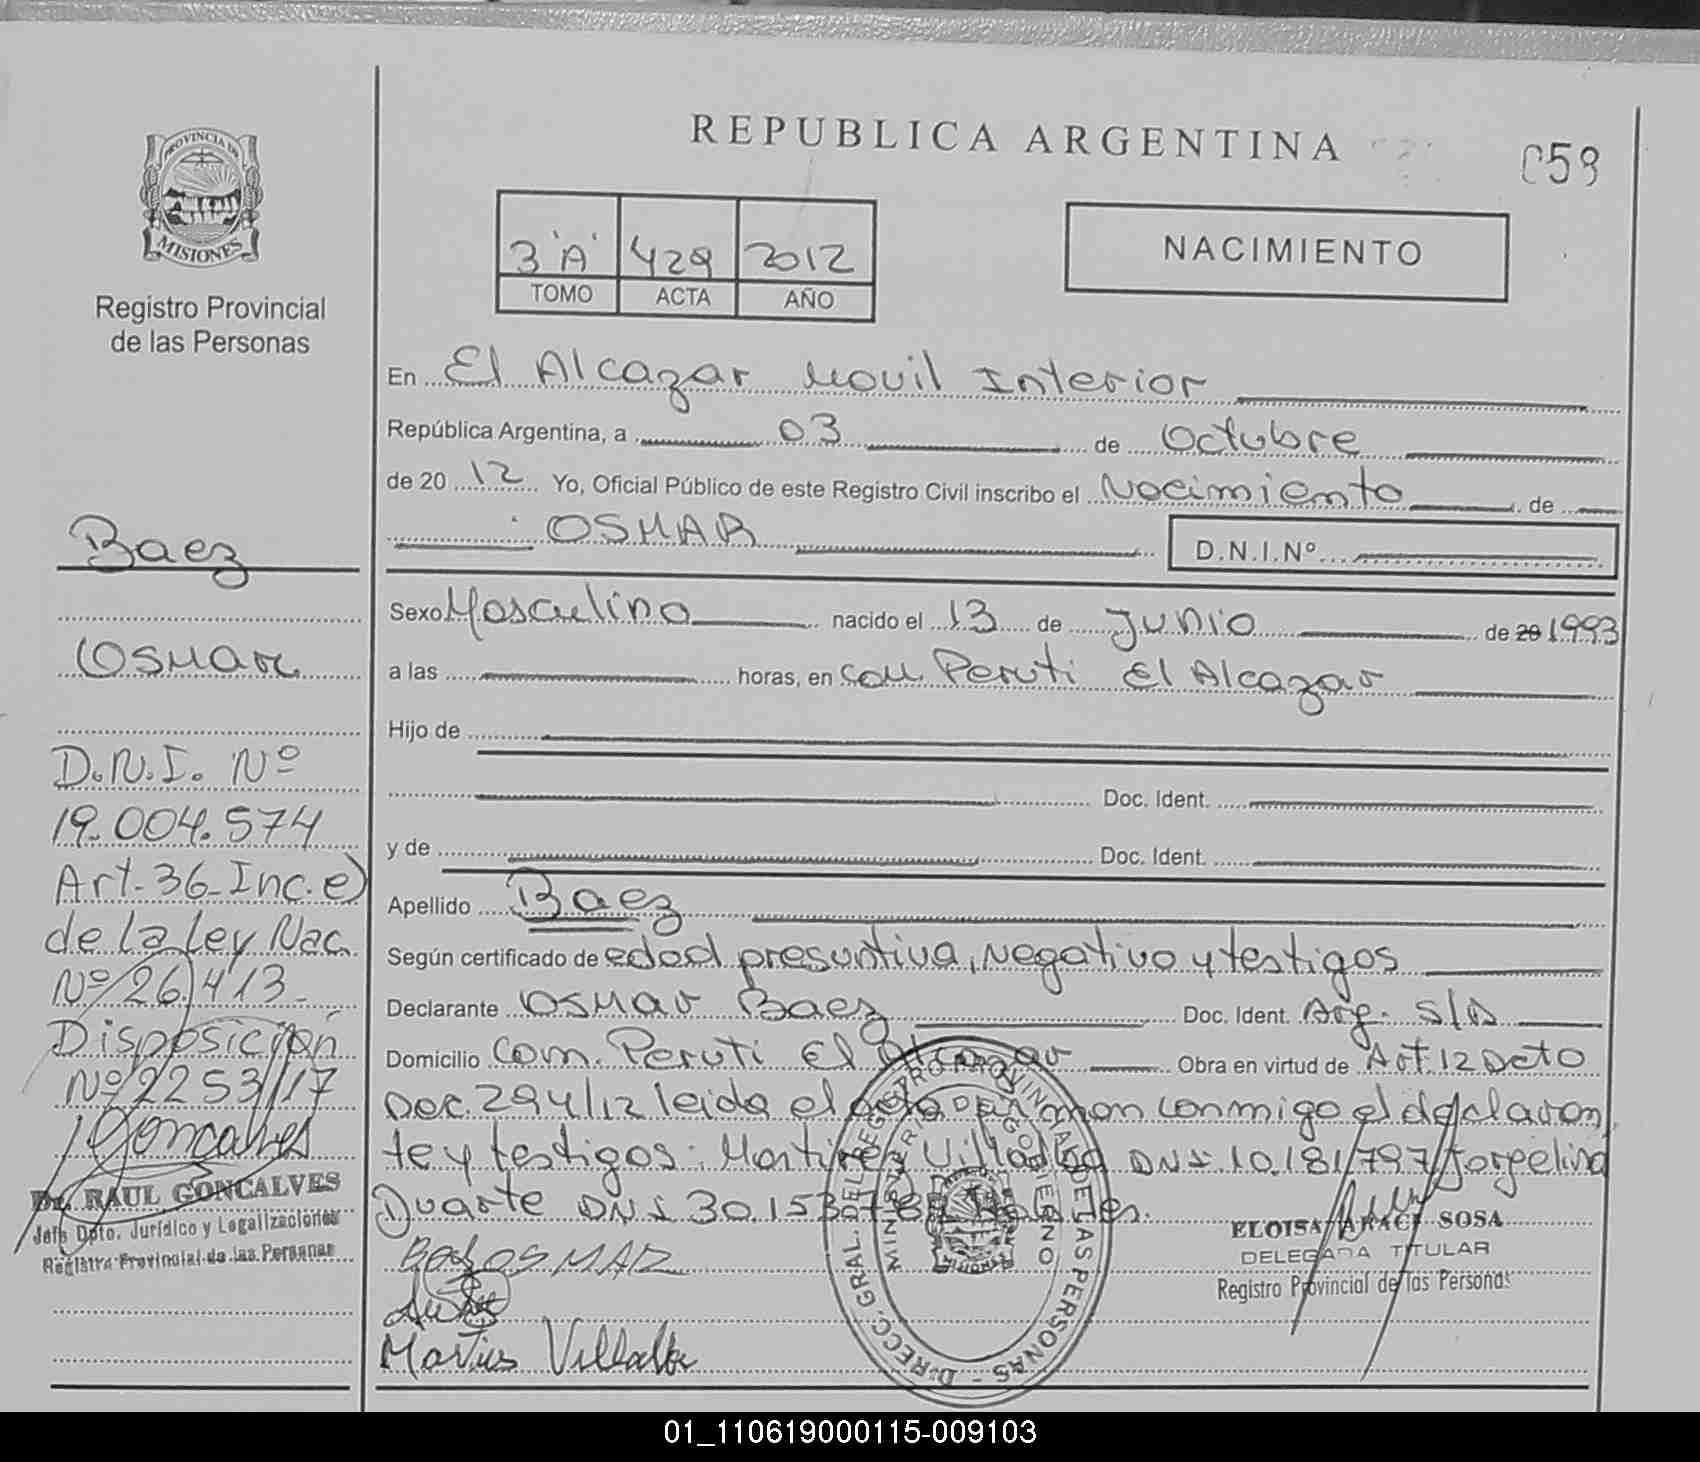 REPUBLICA ARGENTINA
058
PROVINCIA DE
MISIONES
Registro Provincial
de las Personas
3 "A" 429 2012
TOMO ACTA AÑO
NACIMIENTO
En El Alcazar Movil Interior
República Argentina, a 03 de Octubre
de 20 12 Yo, Oficial Público de este Registro Civil inscribo el Nacimiento de
OSMAR D.N.I.Nº
Sexo Masculino nacido el 13 de Junio de 20 1993
a las horas, en Com. Peruti El Alcazar
Hijo de
Doc. Ident.
y de Doc. Ident.
Apellido Baez
Según certificado de edad presuntiva, Negativo y testigos
Declarante Osmar Baez Doc. Ident. Arg. S/D
Domicilio Com. Peruti El Alcazar Obra en virtud de Art. 12 Dcto
Dec. 294/12 leida el acta conmigo el declaran
te y testigos: Martinez Villalba DNI 10.181.797 Jorgelina
Duarte DNI 30.153.78
Baez OSMAR
Villalba
ELOISA ARACI SOSA
DELEGADA TITULAR
Registro Provincial de las Personas
DIRECC. GRAL. DEL REGISTRO PROVINCIAL DE LAS PERSONAS
MINISTERIO DE GOBIERNO
Baez
Osmar
D.N.I. Nº
19.004.574
Art. 36 Inc. e)
de la ley Nac.
Nº 26.413
Disposición
Nº 2253/17
Goncalves
Dr. RAUL GONCALVES
Jefe Dpto. Jurídico y Legalizaciones
Registro Provincial de las Personas
01_110619000115-009103